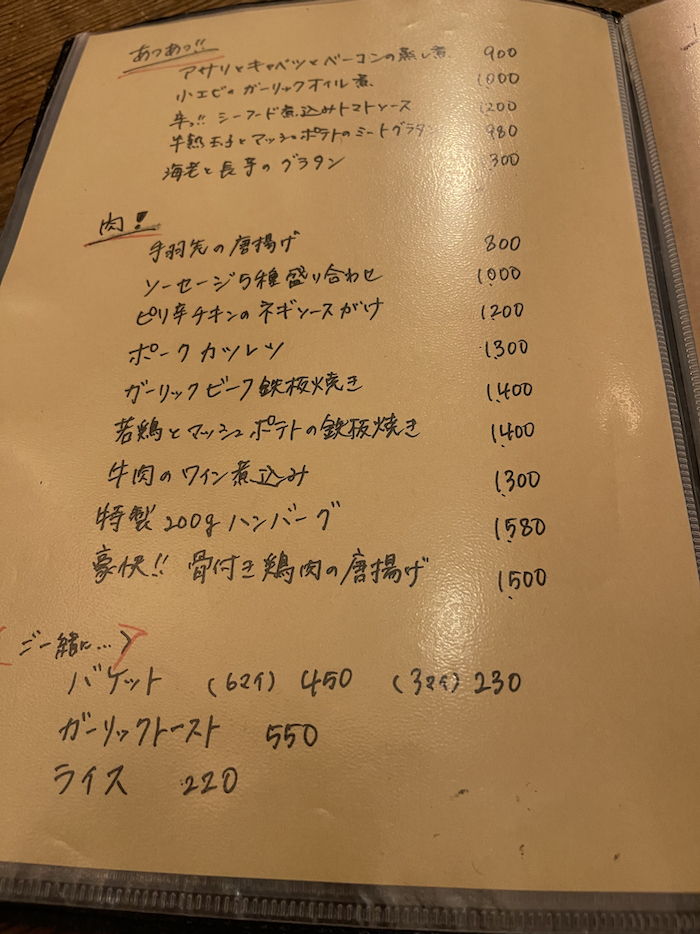 あつあつ!!
アサリとキャベツとベーコンの蒸し煮 900
小エビのガーリックオイル煮 1000
シーフード煮込みトマトソース 1200
半熟玉子とマッシュポテトのミートグラタン 980
海老と長芋のグラタン 1300
肉!
手羽先の唐揚げ 800
ソーセージ5種盛り合わせ 1,000
ピリ辛チキンのネギソースがけ 1,200
ポークカツレツ 1,300
ガーリックビーフ鉄板焼き 1,400
若鶏とマッシュポテトの鉄板焼き 1,400
牛肉のワイン煮込み 1,300
特製200gハンバーグ 1,580
豪快!! 骨付き鶏肉の唐揚げ 1,500
〈ご一緒に…〉
バケット (6マイ) 450 (3マイ) 230
ガーリックトースト 550
ライス 220